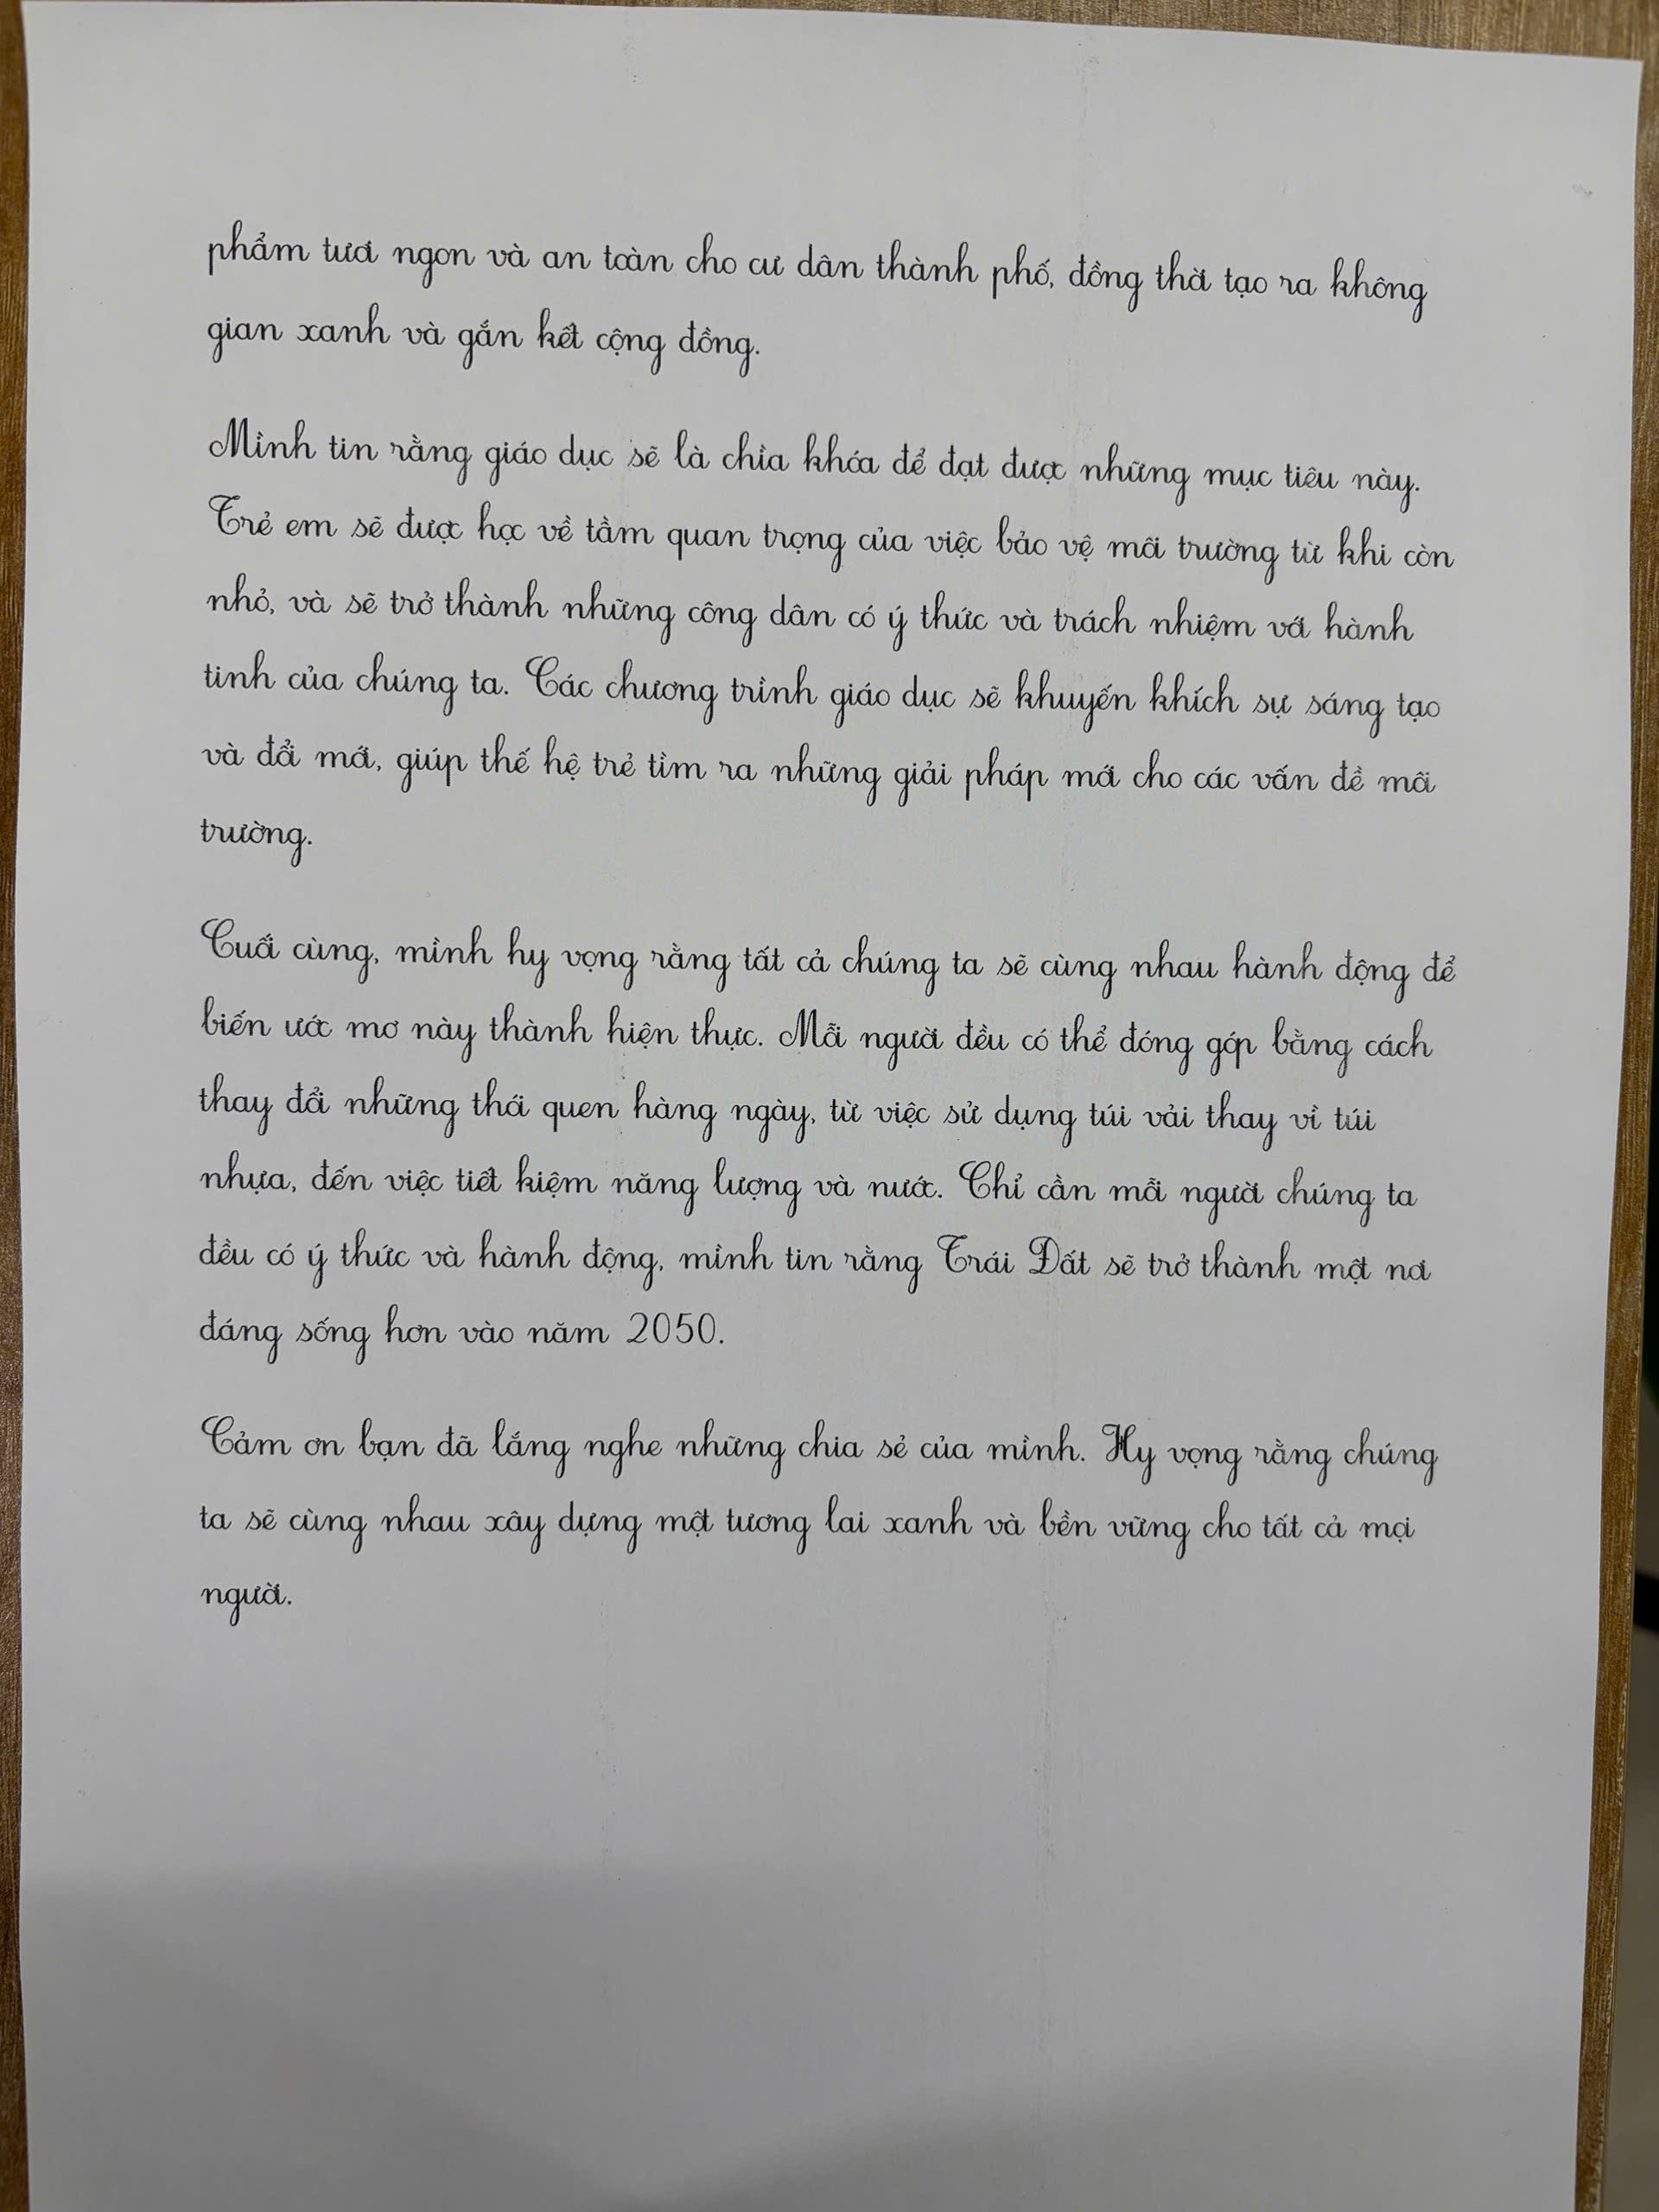 phẩm tươi ngon và an toàn cho cư dân thành phố, đồng thời tạo ra không
gian xanh và gắn kết cộng đồng.
Mình tin rằng giáo dục sẽ là chìa khóa để đạt được những mục tiêu này.
Trẻ em sẽ được học về tầm quan trọng của việc bảo vệ môi trường từ khi còn
nhỏ, và sẽ trở thành những công dân có ý thức và trách nhiệm với hành
tinh của chúng ta. Các chương trình giáo dục sẽ khuyến khích sự sáng tạo
và đổi mới, giúp thế hệ trẻ tìm ra những giải pháp mới cho các vấn đề môi
trường.
Cuối cùng, mình hy vọng rằng tất cả chúng ta sẽ cùng nhau hành động để
biến ước mơ này thành hiện thực. Mỗi người đều có thể đóng góp bằng cách
thay đổi những thói quen hàng ngày, từ việc sử dụng túi vải thay vì túi
nhựa, đến việc tiết kiệm năng lượng và nước. Chỉ cần mỗi người chúng ta
đều có ý thức và hành động, mình tin rằng Trái Đất sẽ trở thành một nơi
đáng sống hơn vào năm 2050.
Cảm ơn bạn đã lắng nghe những chia sẻ của mình. Hy vọng rằng chúng
ta sẽ cùng nhau xây dựng một tương lai xanh và bền vững cho tất cả mọi
người.